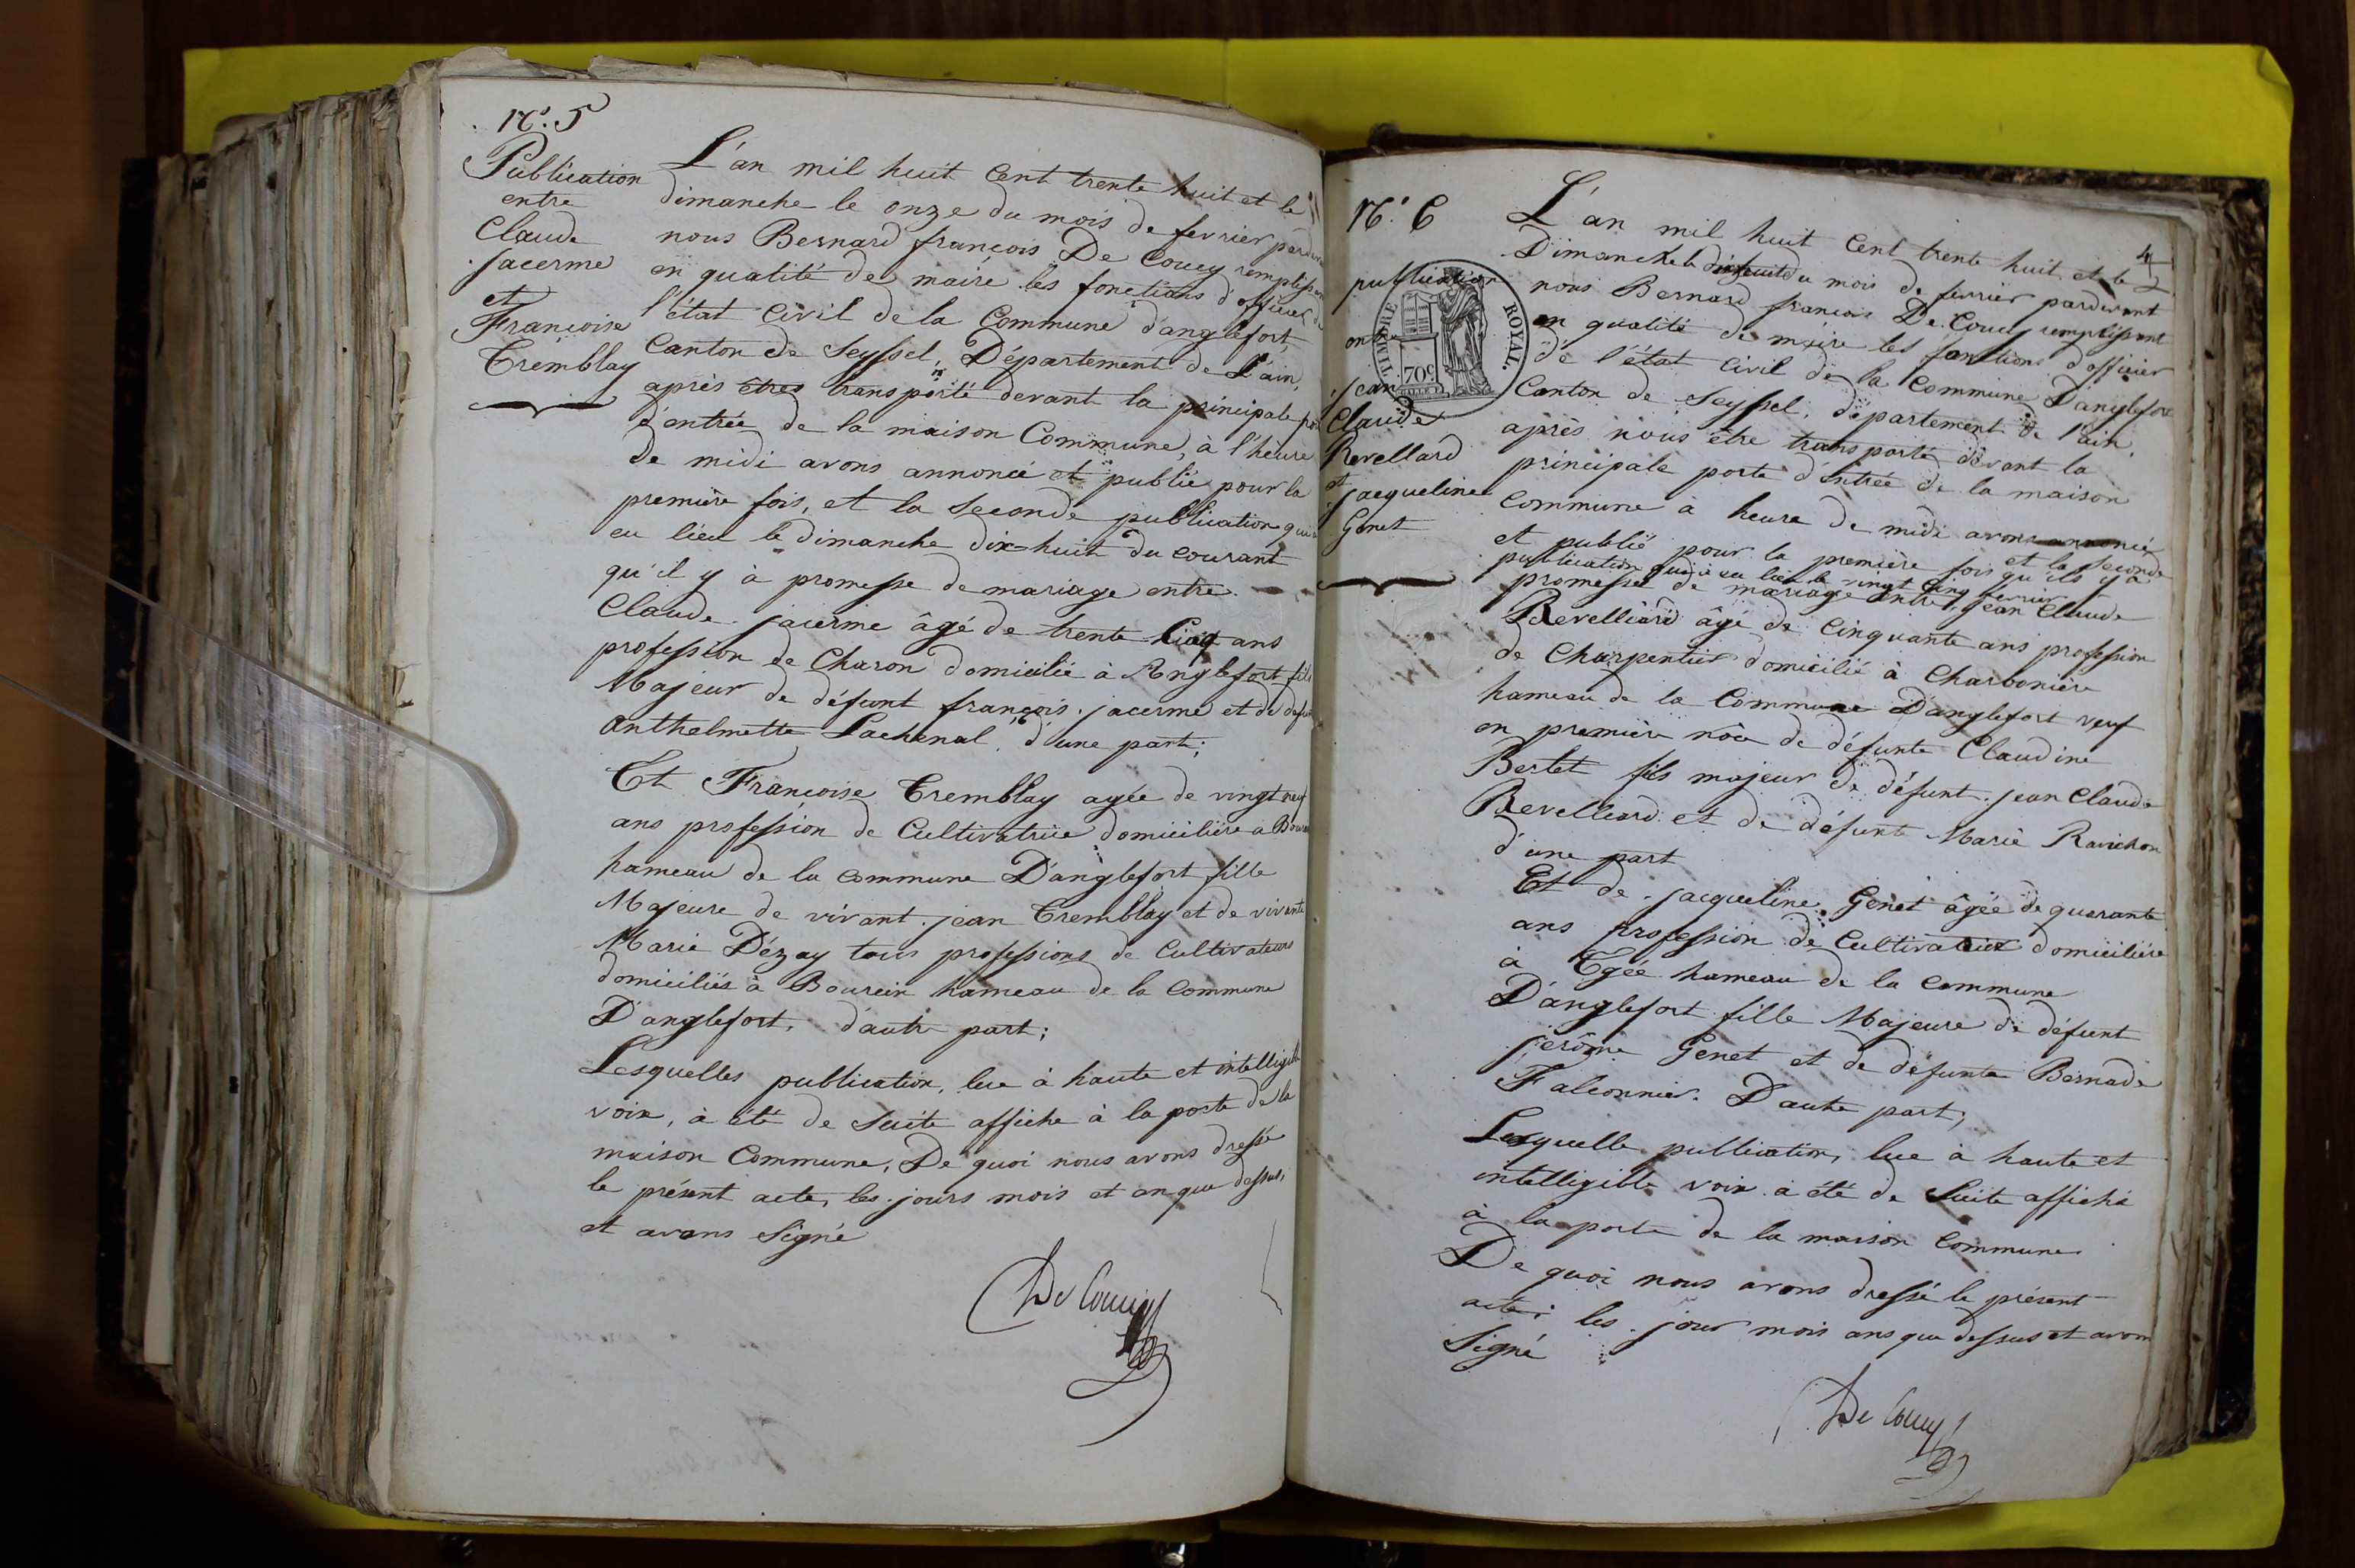 N.° 5
Publication
entre
Claude
jacerme
et
Francoise
Tremblay
L'an mil huit Cent trente huit et le
dimanche le onze du mois de fevrier
nous Bernard françois De Coucy
en qualité de maire les fonctions d'officier
l'état Civil de la Commune d'anglefort,
Canton de Seyssel, Département de L'ain,
après êtres transporté devant la principale
d'entrée de la maison Commune, à l'heure
de midi avons annoncé et publié pour la
première fois, et la Seconde publication
eu lieu le dimanche dix=huit du courant
qu'il y à promesse de mariage entre
Claude jacerme âgé de trente Cinq ans
profession de Charon domicilié à Anglefort
Majeur de défunt françois jacerme et de
anthelmette Lachenal, d'une part;
Et Francoise Tremblay agée de vingt neuf
ans profession de Cultivatrice domicilière a
hameau de la commune D'anglefort fille
Majeure de vivant jean Tremblay et de vivante
Marie Dézay tous professions de Cultivateurs
domiciliés à Boursin hameau de la Commune
D'anglefort, d'autre part;
Lesquelles publication, lue à haute et intelligible
voix, à été de Suite affiche à la porte de la
maison Commune, De quoi nous avons dressé
le présent acte, les jours mois et an que dessus,
et avons Signé
De Coucy
4
N.° 6
publication
entre
jean
Claude
Revellard
et
jacqueline
Genet
TIMBRE ROYAL.
70c.
L'an mil huit Cent trente huit et le
Dimanche le dixhuit du mois de fevrier pardevant
nous Bernard françois De Coucy remplissant
en qualité de maire les fonctions d'officier
de l'état Civil de la Commune D'anglefort
Canton de Seyssel, département de l'ain,
après nous être transporté devant la
principale porte d'entrée de la maison
Commune à heure de midi avons annoncé
et publié pour la première fois et la Seconde
publication qui à eu lieu le vingt cinq fevrier qu'ils y a
promesse de mariage entre jean Claude
Revelliard âgé de Cinquante ans profession
de Charpentier domicilié à Charbonière
hameau de la Commune D'anglefort veuf
en première nôce de défunte Claudine
Berlet fils majeur de défunt jean Claude
Revelleard et de défunte Marie Ravichon
d'une part
Et de jacqueline Genet âgée de quarante
ans profession de Cultivatrice domicilière
à Egée hameau de la Commune
D'anglefort fille Majeure de défunt
jerôme Genet et de défunte Bernade
Falconnier. D'autre part;
Lesquelle publication, lue à haute et
intelligible voix à été de Suite affiché
à la porte de la maison Commune
De quoi nous avons dressé le présent
acte; les jour mois ans que dessus et avons
Signé
De Coucy